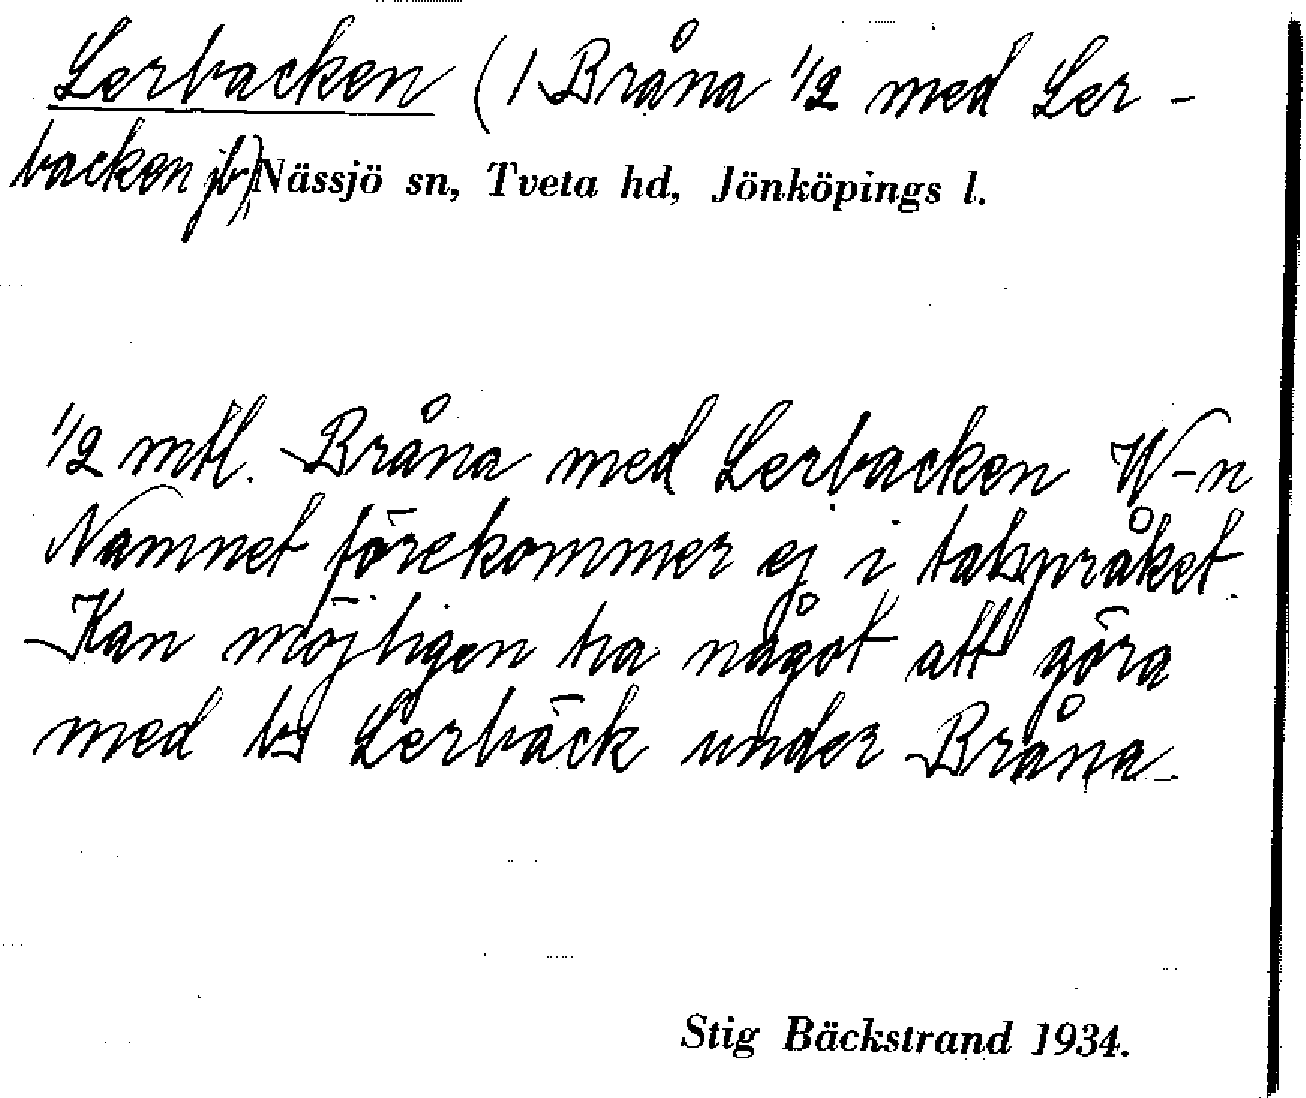 Lerbacken (1 Bråna 1/2 med Ler-
backen jb) Nässjö sn, Tveta hd, Jönköpings l.
1/2 mtl. Bråna med Lerbacken W-n
Namnet förekommer ej i talspråket.
Kan möjligen ha något att göra
med bs Lerbäck under Bråna.
Stig Bäckstrand 1934.